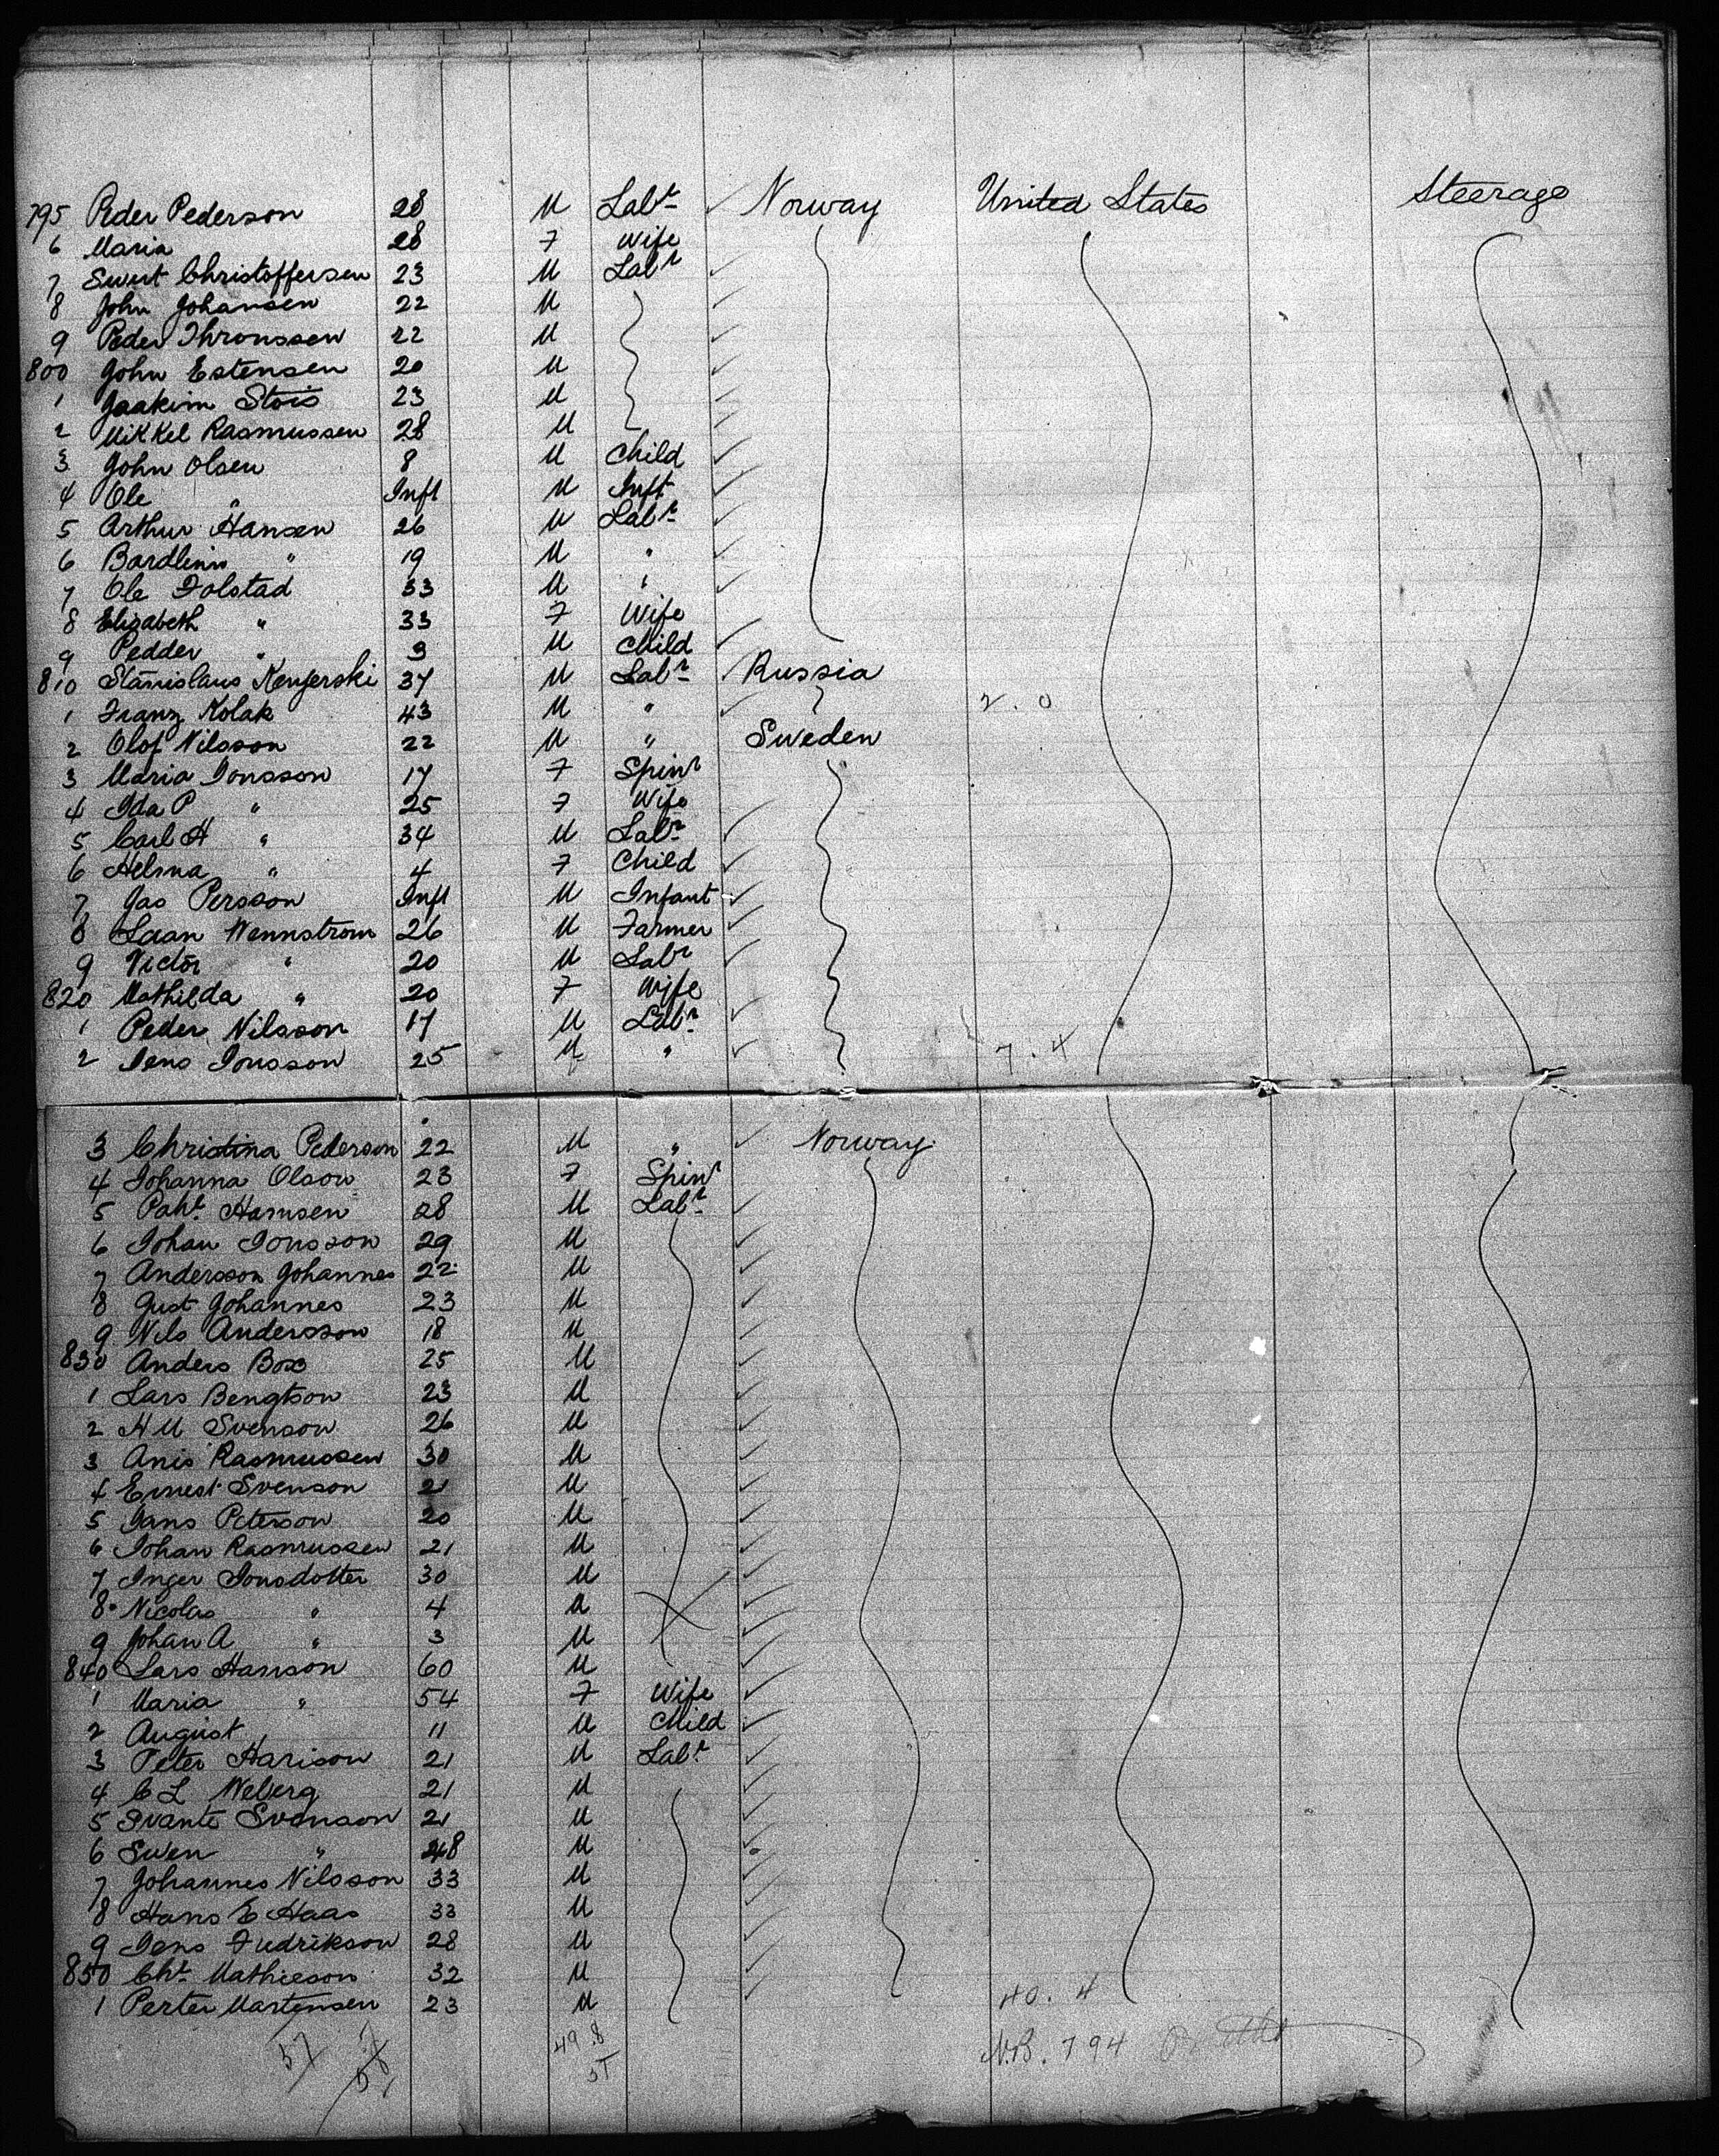 795 Peder Pederson 28 M Labr Norway United States Steerage
6 Maria 28 F Wife
7 Sivert Christoffersen 23 M Labr
8 John Johansen 22 M
9 Peder Thronssen 22 M
800 John Estensen 20 M
1 Joakim Stois 23 M
2 Mikkel Rasmussen 28 M
3 John Olsen 8 M Child
4 Ole " Inft M Inft
5 Arthur Hansen 26 M Labr
6 Bardlinn " 19 M "
7 Ole Folstad 33 M "
8 Elizabeth " 33 F Wife
9 Pedder " 9 M Child
810 Stanislaus Kenjerski 37 M Labr Russia
1 Franz Kolak 43 M " 2.0
2 Olof Nilsson 22 M " Sweden
3 Maria Jonsson 17 F Spinr
4 Ida P " 25 F Wife
5 Carl H " 34 M Labr
6 Helma " 4 F Child
7 Gas Persson Inft M Infant
8 Laan Wennstrom 26 M Farmer
9 Victor " 20 M Labr
820 Mathilda " 20 F Wife
1 Peder Nilsson 17 M Labr
2 Jens Jonsson 25 M " 7.4
3 Christina Pederson 22 M " Norway
4 Johanna Olson 23 F Spinr
5 Paht Hamsen 28 M Labr
6 Johan Jonsson 29 M
7 Andersson Johannes 22 M
8 Gust Johannes 23 M
9 Nils Andersson 18 M
830 Anders Box 25 M
1 Lars Bengtson 23 M
2 H M Svenson 26 M
3 Anis Rasmussen 30 M
4 Ernest Svenson 21 M
5 Jans Peterson 20 M
6 Johan Rasmussen 21 M
7 Inger Jonsdotter 30 M
8 Nicolas " 4 M
9 Johan A " 3 M
840 Lars Hanson 60 M
1 Maria " 54 F Wife
2 August " 11 M Child
3 Peter Harison 21 M Labr
4 C L Weberg 21 M
5 Svante Svenson 21 M
6 Swen " 28 M
7 Johannes Nilsson 33 M
8 Hans E Haas 33 M
9 Jens Fredrikson 28 M
850 Cht Mathieson 32 M
1 Perter Martensen 23 M 40.4
57 49.8 N.B. 794